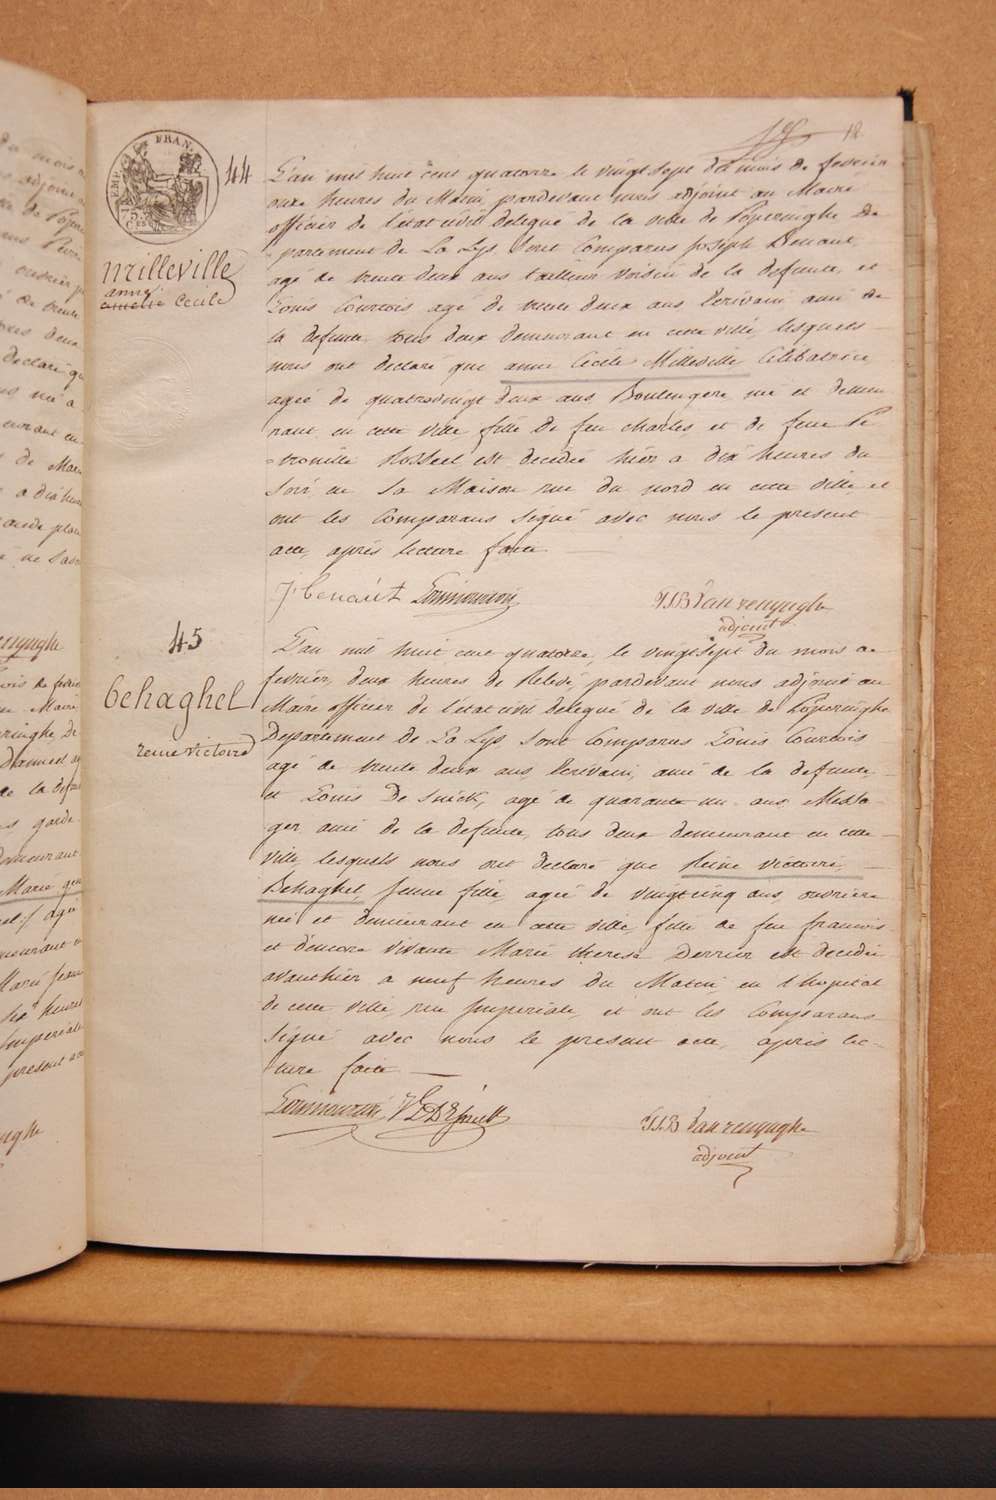 18
EMP. FRAN.
75.
Ces
44
L'an mil huit cent quatorze le vingtsept du mois de fevrier
onze heures du Matin, pardevant nous adjoint au Maire
officier de l'état civil delegué de la ville de Poperinghe De
partement de La Lys Sont Comparus joseph Benaut,
agé de trente deux ans tailleur voisin de la defunte, et
Louis Courtois agé de trente deux ans Ecrivain amé de
la defunte, tous deux demeurant en cette ville, lesquels
nous ont declaré que anne Cecile Milleville Celibatrice
agée de quatrevingt deux ans, Boulengere née et demeu
rant en cette ville fille de feu charles et de feue Pe
tronille Rosseel est decedée hier a dix heures du
Soir en Sa Maison rue du nord en cette ville et
ont les Comparans Signé avec nous le present
acte, après lecture faite
Milleville
anne
amelie Cecile
J. benaut
P.J.B Van renynghe
adjoint
45
Behaghel
reine victoire
L'an mil huit cent quatorze, le vingtsept du mois de
fevrier, deux heures de Relevé pardevant nous adjoint au
Maire officier de l'état civil delegué de la ville de Poperinghe
Departement de La Lys Sont Comparus Louis Courtois
agé de trente deux ans, Ecrivain, amé de la defunte,
et Louis De Snick, agé de quarante un ans, Messa-
ger amé de la defunte, tous deux demeurant en cette
ville, lesquels nous ont declaré que Reine victoire
Behaghel, Jeune fille, agée de vingtcinq ans, ouvriere
née et demeurant en cette ville, fille de feu francois
et d'encore vivante Marie therese Derrier est decedée
avanthier a neuf heures du Matin en l'hopital
de cette ville, rue Imperiale, et ont les Comparans
Signé avec nous le present acte, après lec-
ture faite
P.J.B Van renynghe
adjoint